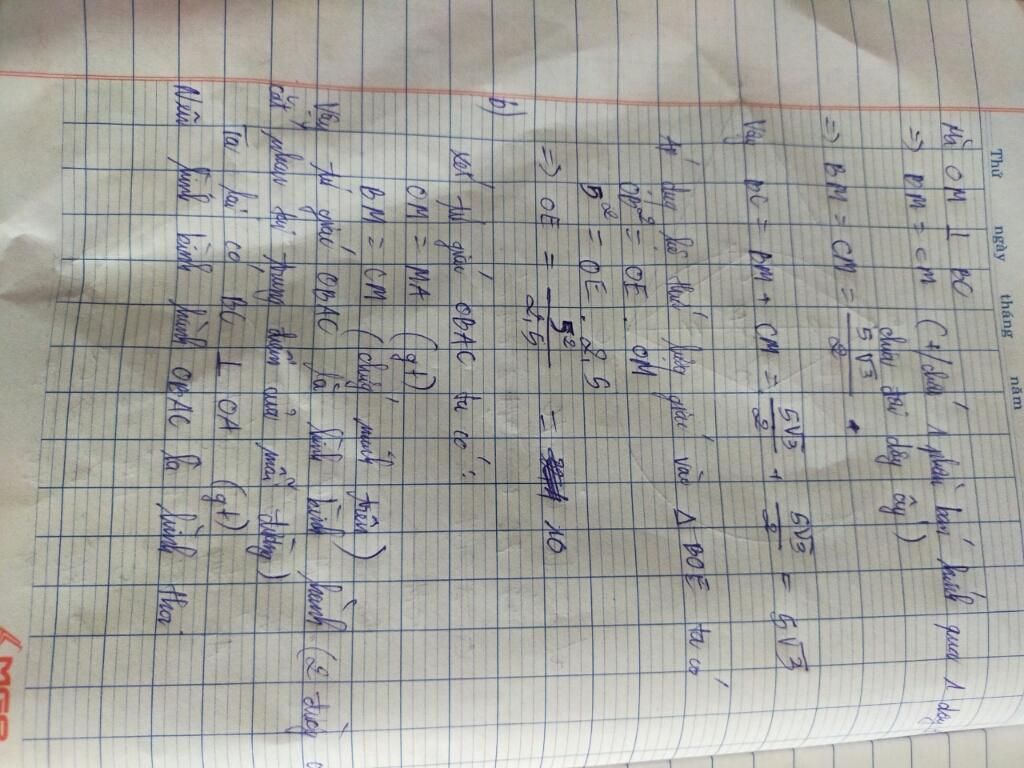 Thứ ngày tháng năm
Mà OM ⊥ BC (t/chất 1 phần bán kính qua 1 dây
⇒ BM = CM chia đôi dây ấy)
⇒ BM = CM = 5√3/2
Vậy BC = BM + CM = 5√3/2 + 5√3/2 = 5√3
Áp dụng hệ thức lượng giác vào Δ BOE ta có
OB² = OE. OM
5² = OE. 2,5
⇒ OE = 5²/2,5 = 10
b)
Xét tứ giác OBAC ta có:
OM = MA (gt)
BM = CM (chứng minh trên)
Vậy tứ giác OBAC là hình bình hành (2 đường
cắt nhau tại trung điểm của mỗi đường)
Ta lại có BC ⊥ OA (gt)
Nên hình bình hành OBAC là hình thoi.